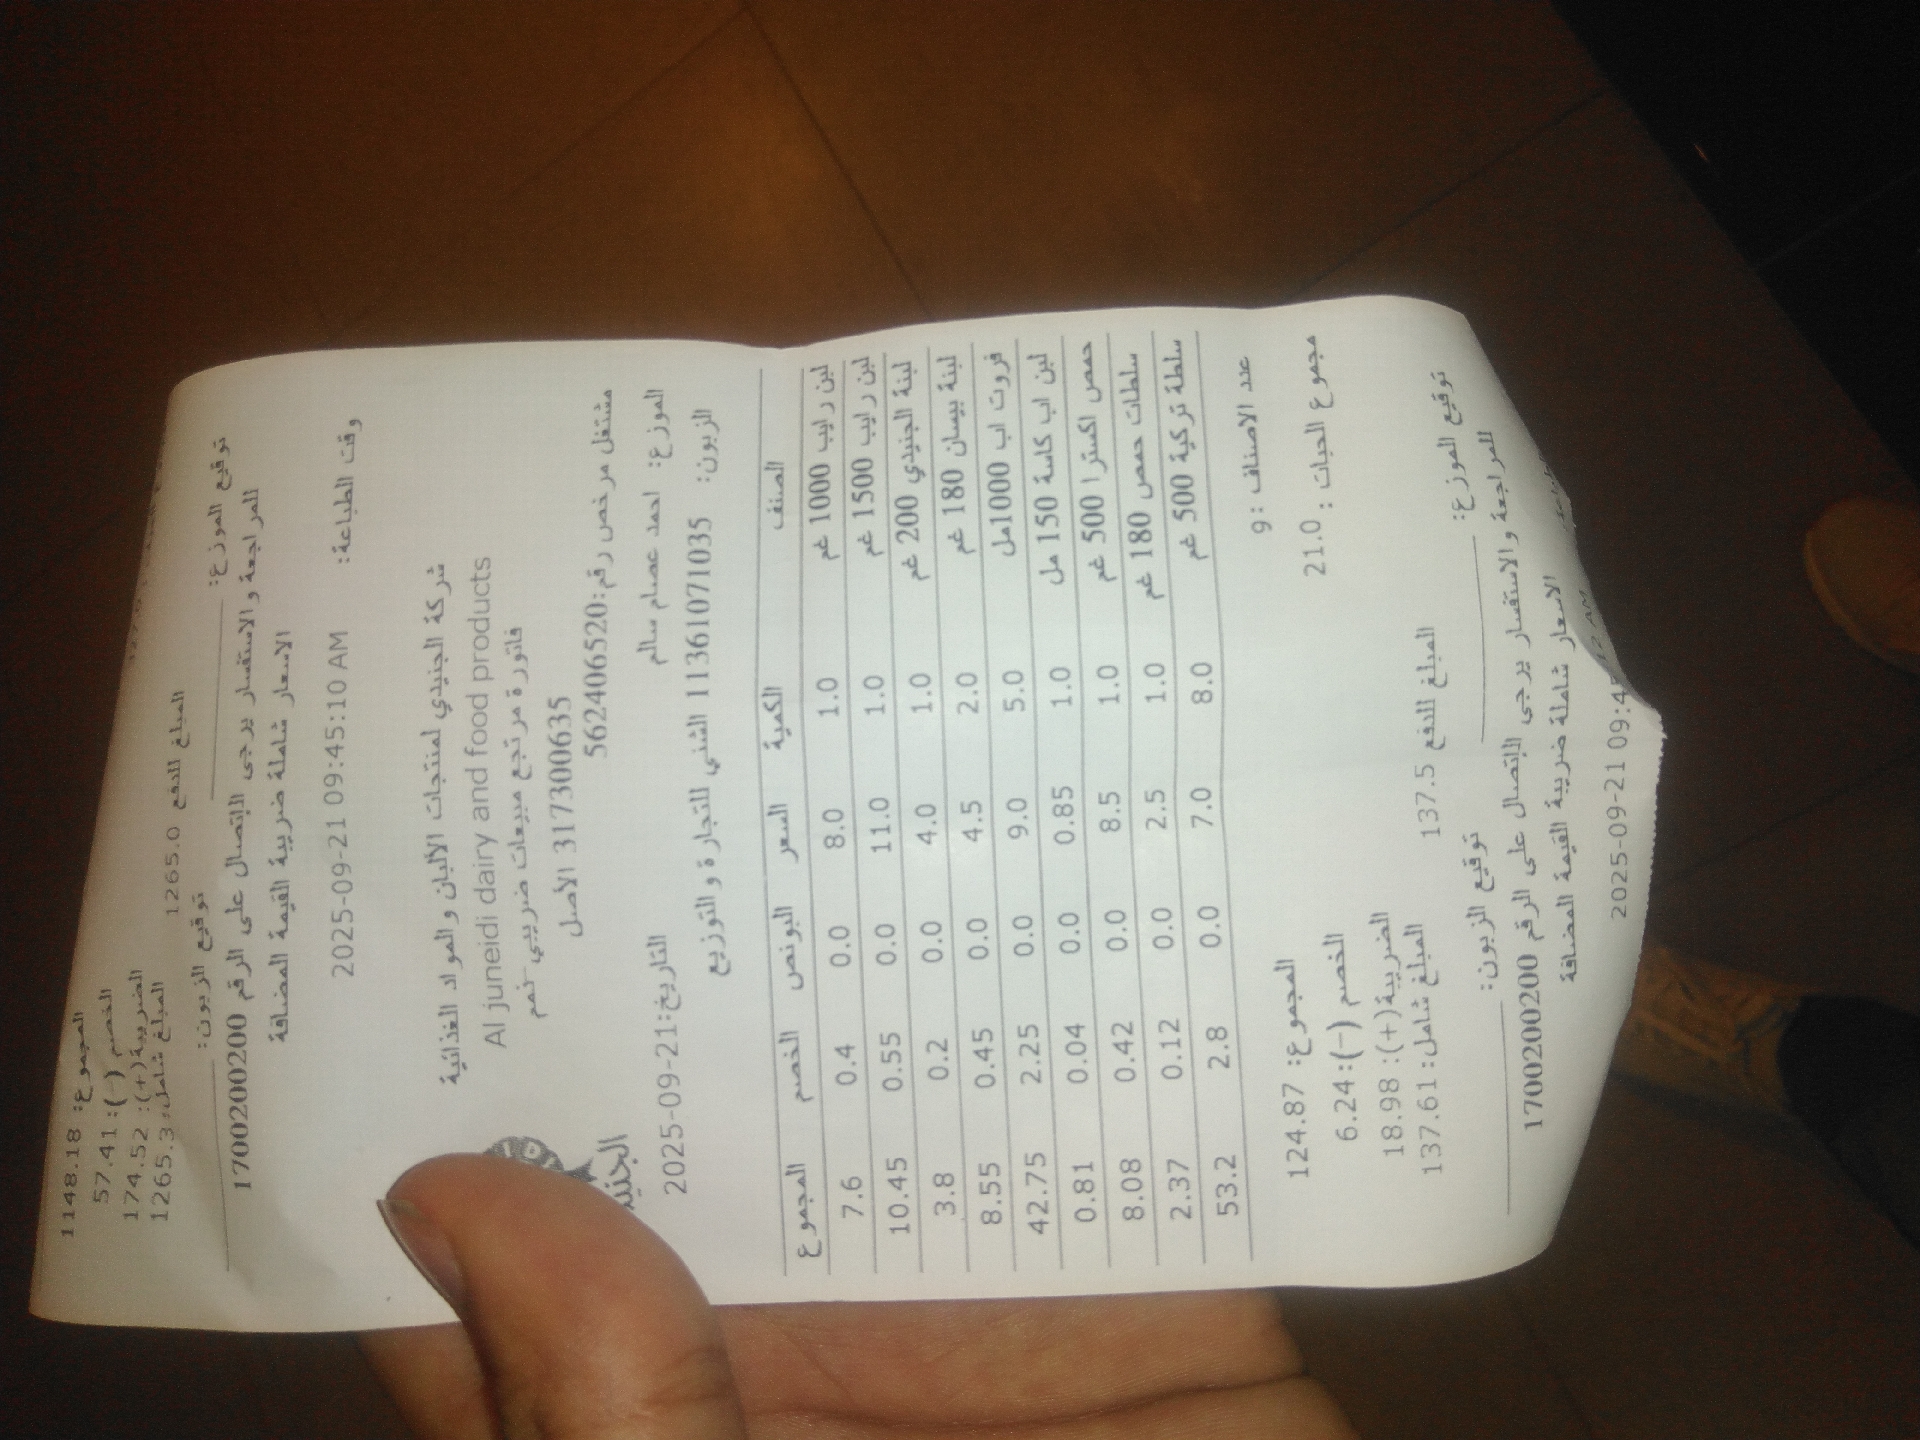 المجموع: 1148.18
الخصم (-): 57.41
الضريبة(+): 174.52
المبلغ شامل: 1265.3 المبلغ للدفع 1265.0
توقيع الموزع: توقيع الزبون:
للمراجعة والاستفسار يرجى الاتصال على الرقم 1700200200
الاسعار شاملة ضريبة القيمة المضافة
وقت الطباعة: 2025-09-21 09:45:10 AM
شركة الجنيدي لمنتجات الألبان والمواد الغذائية
Al juneidi dairy and food products
فاتورة مرتجع مبيعات ضريبي
3173000635 الأصل
مشتغل مرخص رقم:562406520
الموزع: احمد عصام سالم التاريخ:2025-09-21
الزبون: 1136107103​5 الشني للتجارة والتوزيع
الصنف الكمية السعر البونص الخصم المجموع
لبن رايب 1000 غم 1.0 8.0 0.0 0.4 7.6
لبن رايب 1500 غم 1.0 11.0 0.0 0.55 10.45
لبنة الجنيدي 200 غم 1.0 4.0 0.0 0.2 3.8
لبنة بيسان 180 غم 2.0 4.5 0.0 0.45 8.55
فروت اب 1000مل 5.0 9.0 0.0 2.25 42.75
لبن اب كاسة 150 مل 1.0 0.85 0.0 0.04 0.81
حمص اكسترا 500 غم 1.0 8.5 0.0 0.42 8.08
سلطات حمص 180 غم 1.0 2.5 0.0 0.12 2.37
سلطة تركية 500 غم 8.0 7.0 0.0 2.8 53.2
عدد الاصناف :9
مجموع الحبات : 21.0 المجموع: 124.87
الخصم (-): 6.24
الضريبة(+): 18.98
المبلغ شامل: 137.61 المبلغ للدفع 137.5
توقيع الموزع: توقيع الزبون:
للمراجعة والاستفسار يرجى الاتصال على الرقم 1700200200
الاسعار شاملة ضريبة القيمة المضافة
2025-09-21